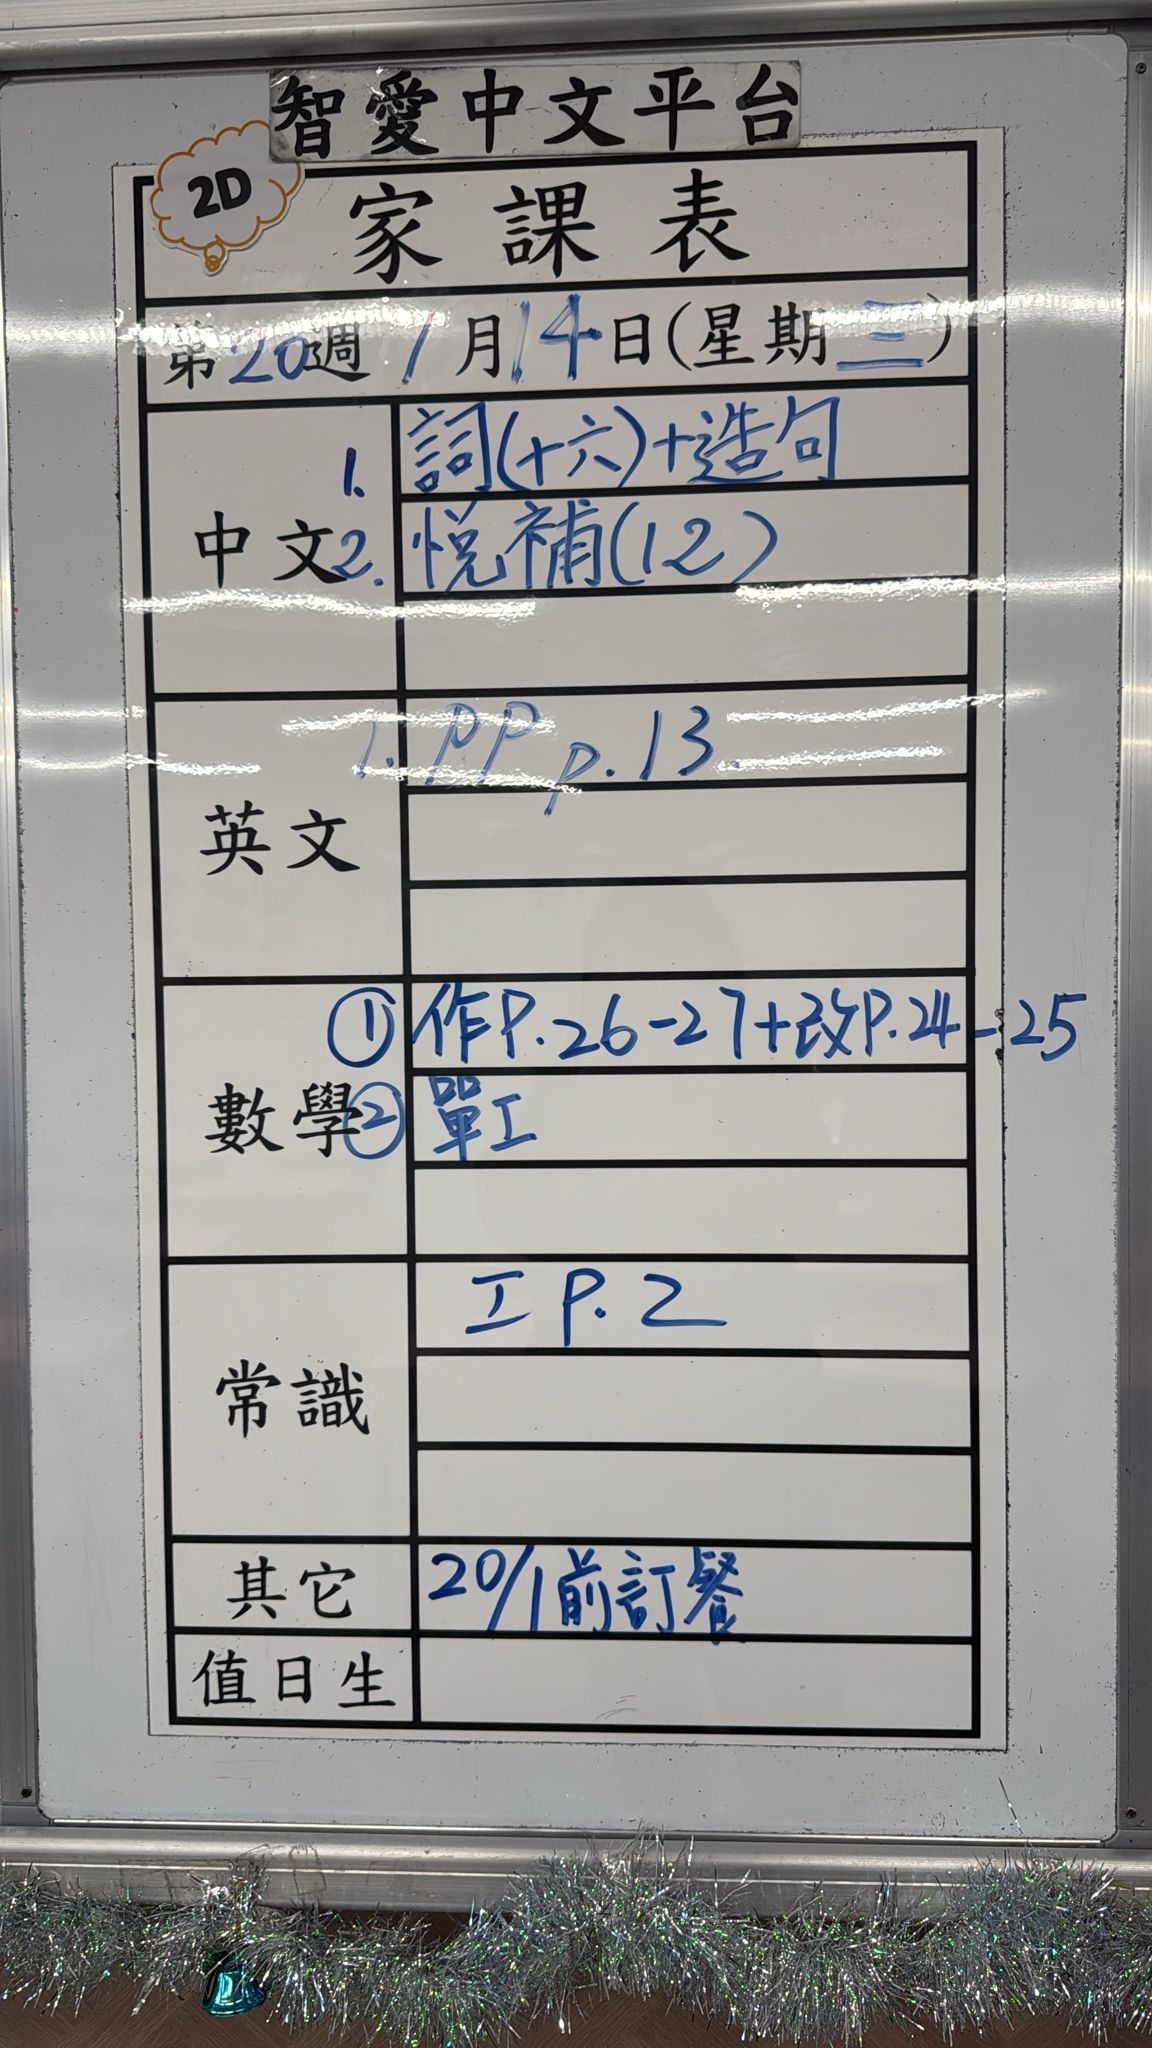 智愛中文平台
2D
家課表
第20週 1月14日(星期三)
中文
1. 詞(十六)+造句
2. 悅補(12)
英文
1. PP p.13
數學
① 作P.26-27+改P.24-25
② 單工
常識
工 P.2
其它
20/1前訂餐
值日生